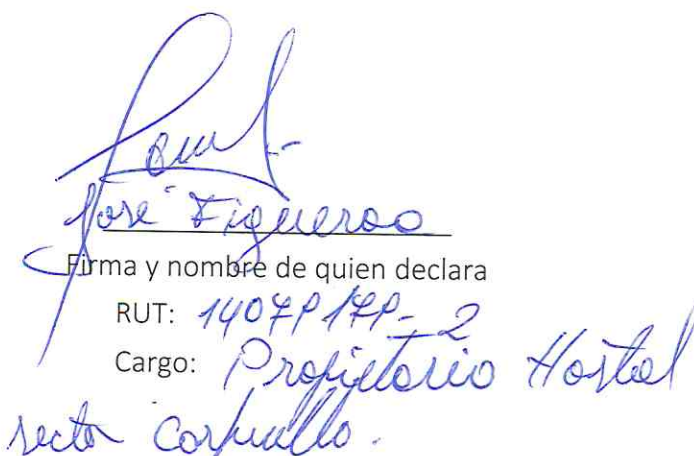 José Figueroa
Firma y nombre de quien declara
RUT: 14079179-2
Cargo: Propietario Hostal
sector